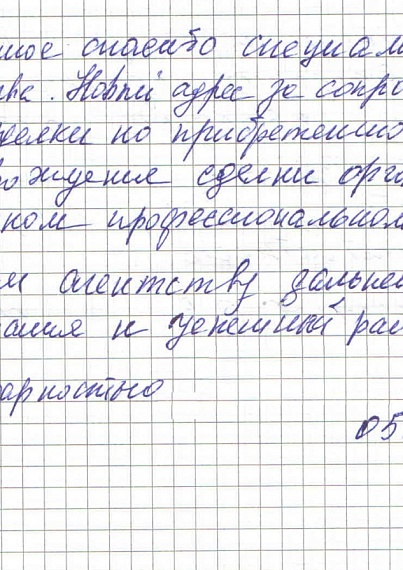 мое спасибо специал
ва. Новый адрес за сопро
делки по прибретению
ождения сделки орга
ком профессионально
м агентству дальней
ания и успешный ра
арностью
05